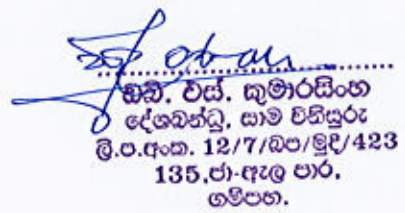 ඩබ්. එස්. කුමාරසිංහ
දේශබන්ධු, සාම විනිසුරු
ලි.ප.අංක. 12/7/බප/මුද්/423
135,ජා-ඇල පාර,
ගම්පහ.